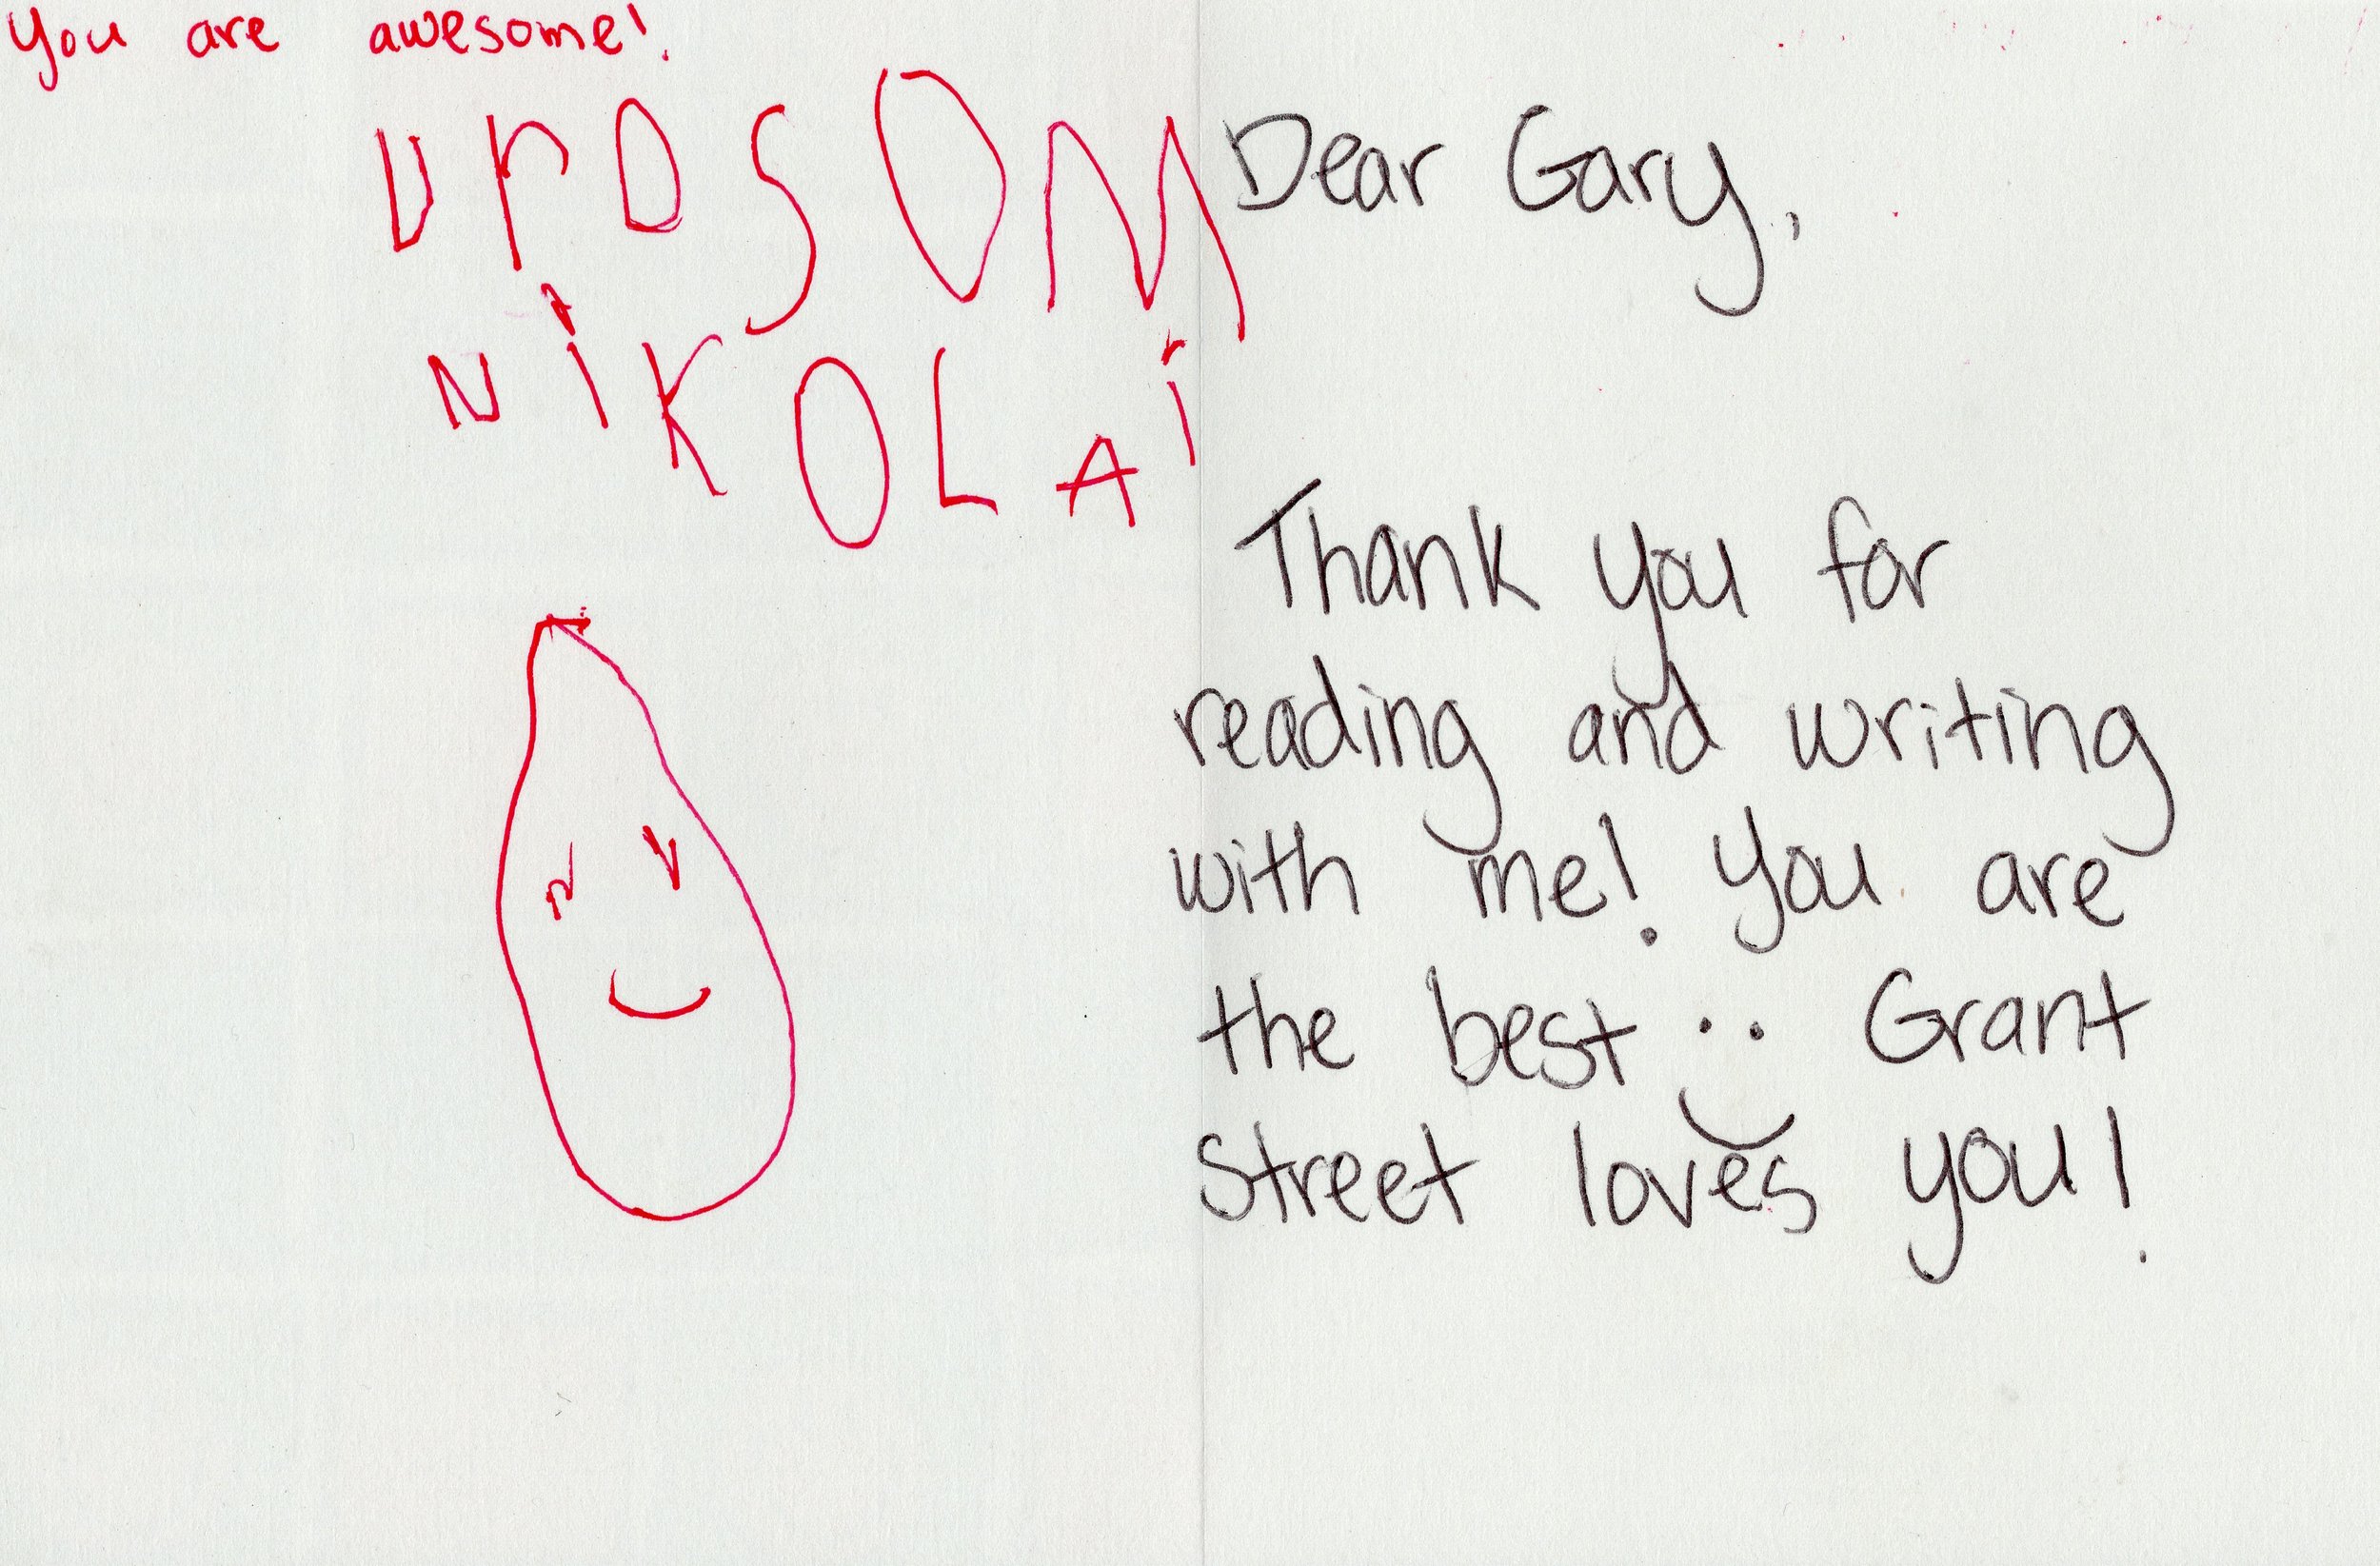 you are awesome!
UROSOM
NiKOLAi
Dear Gary,
Thank you for
reading and writing
with me! You are
the best Grant
Street loves you!